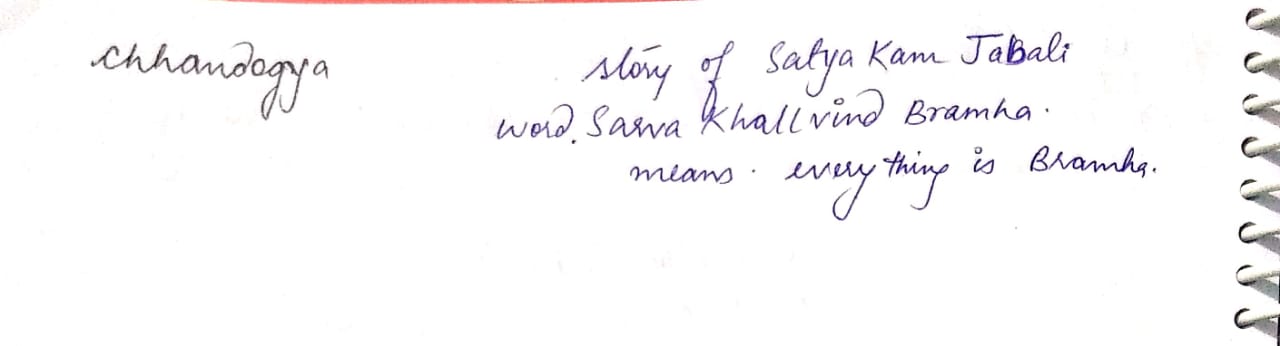 chhandogya story of Satya Kam JaBali
word. Sarva Khallvind Bramha.
means. everything is Bramha.